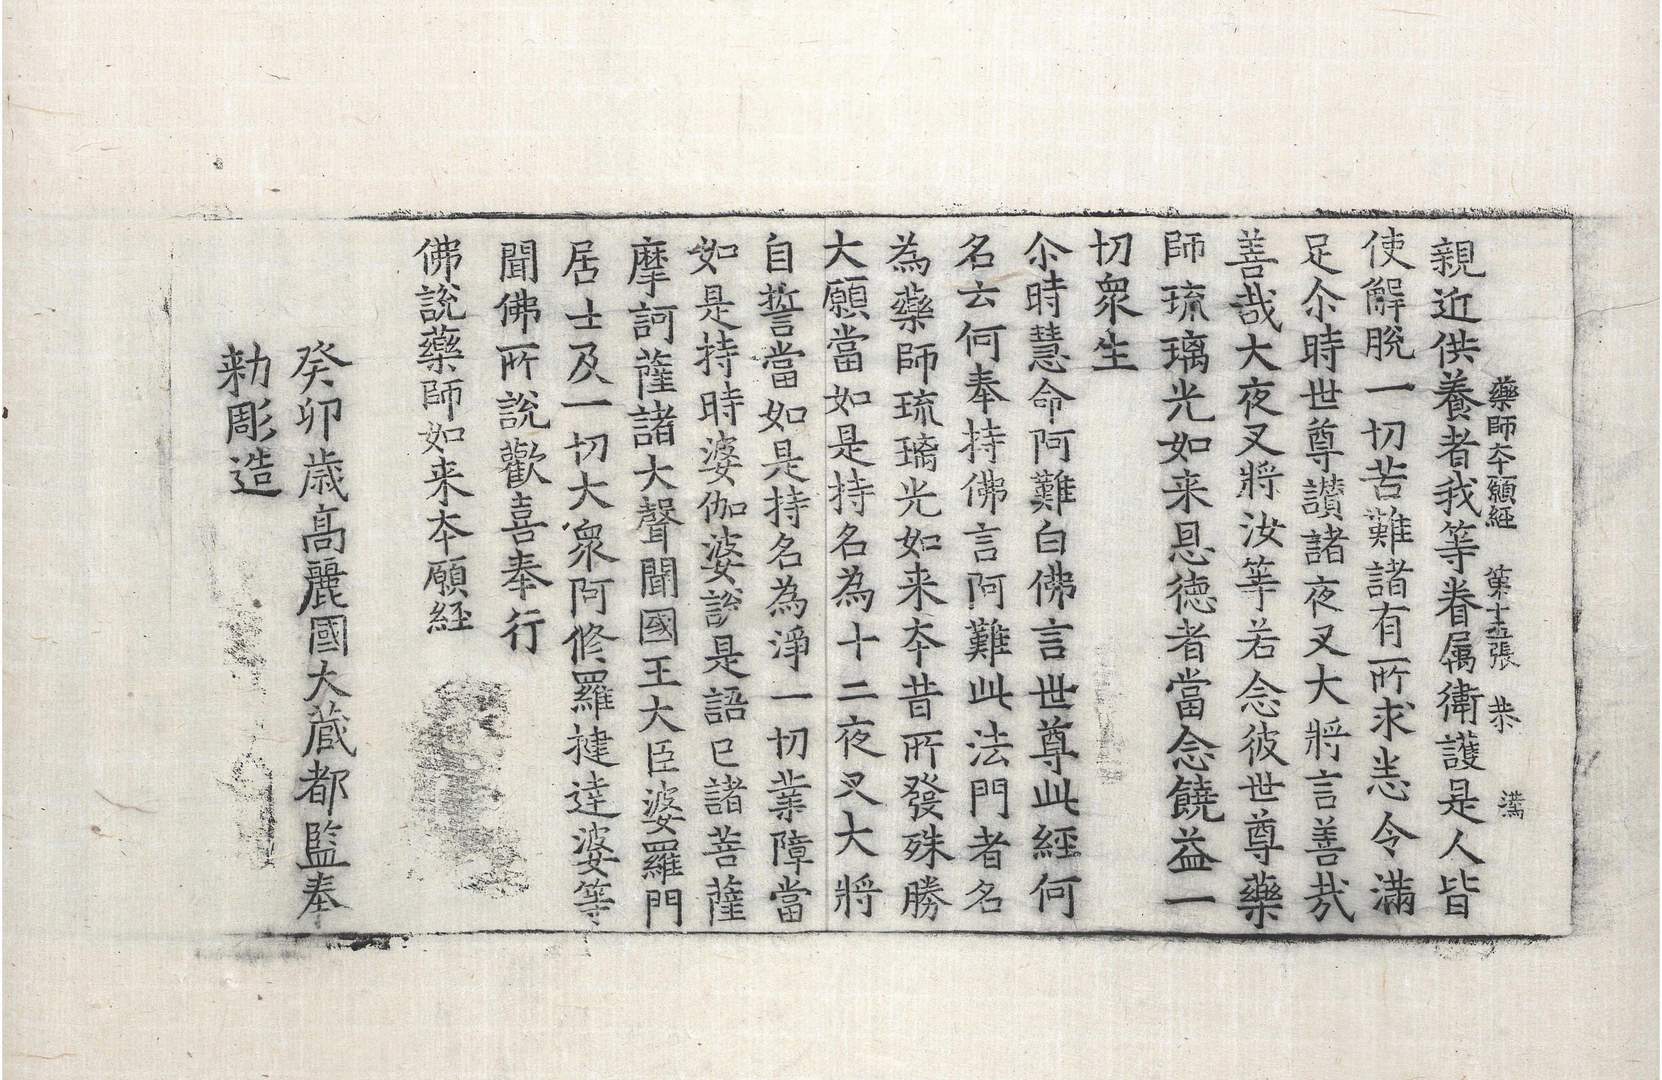 藥師本願經 第十五張 恭
親近供養者我等眷属衛護是人皆
使解脫一切苦難諸有所求悉令滿
足尒時世尊讃諸夜叉大將言善哉
善哉大夜叉將汝等若念彼世尊藥
師琉璃光如来恩德者當念饒益一
切衆生
尒時慧命阿難白佛言世尊此經何
名云何奉持佛言阿難此法門者名
為藥師琉璃光如来本昔所發殊勝
大願當如是持名為十二夜叉大將
自誓當如是持名為淨一切業障當
如是持時婆伽婆說是語已諸菩薩
摩訶薩諸大聲聞國王大臣婆羅門
居士及一切大衆阿修羅揵達婆等
聞佛所說歡喜奉行
佛說藥師如来本願經
癸卯歳高麗國大藏都監奉
勅彫造